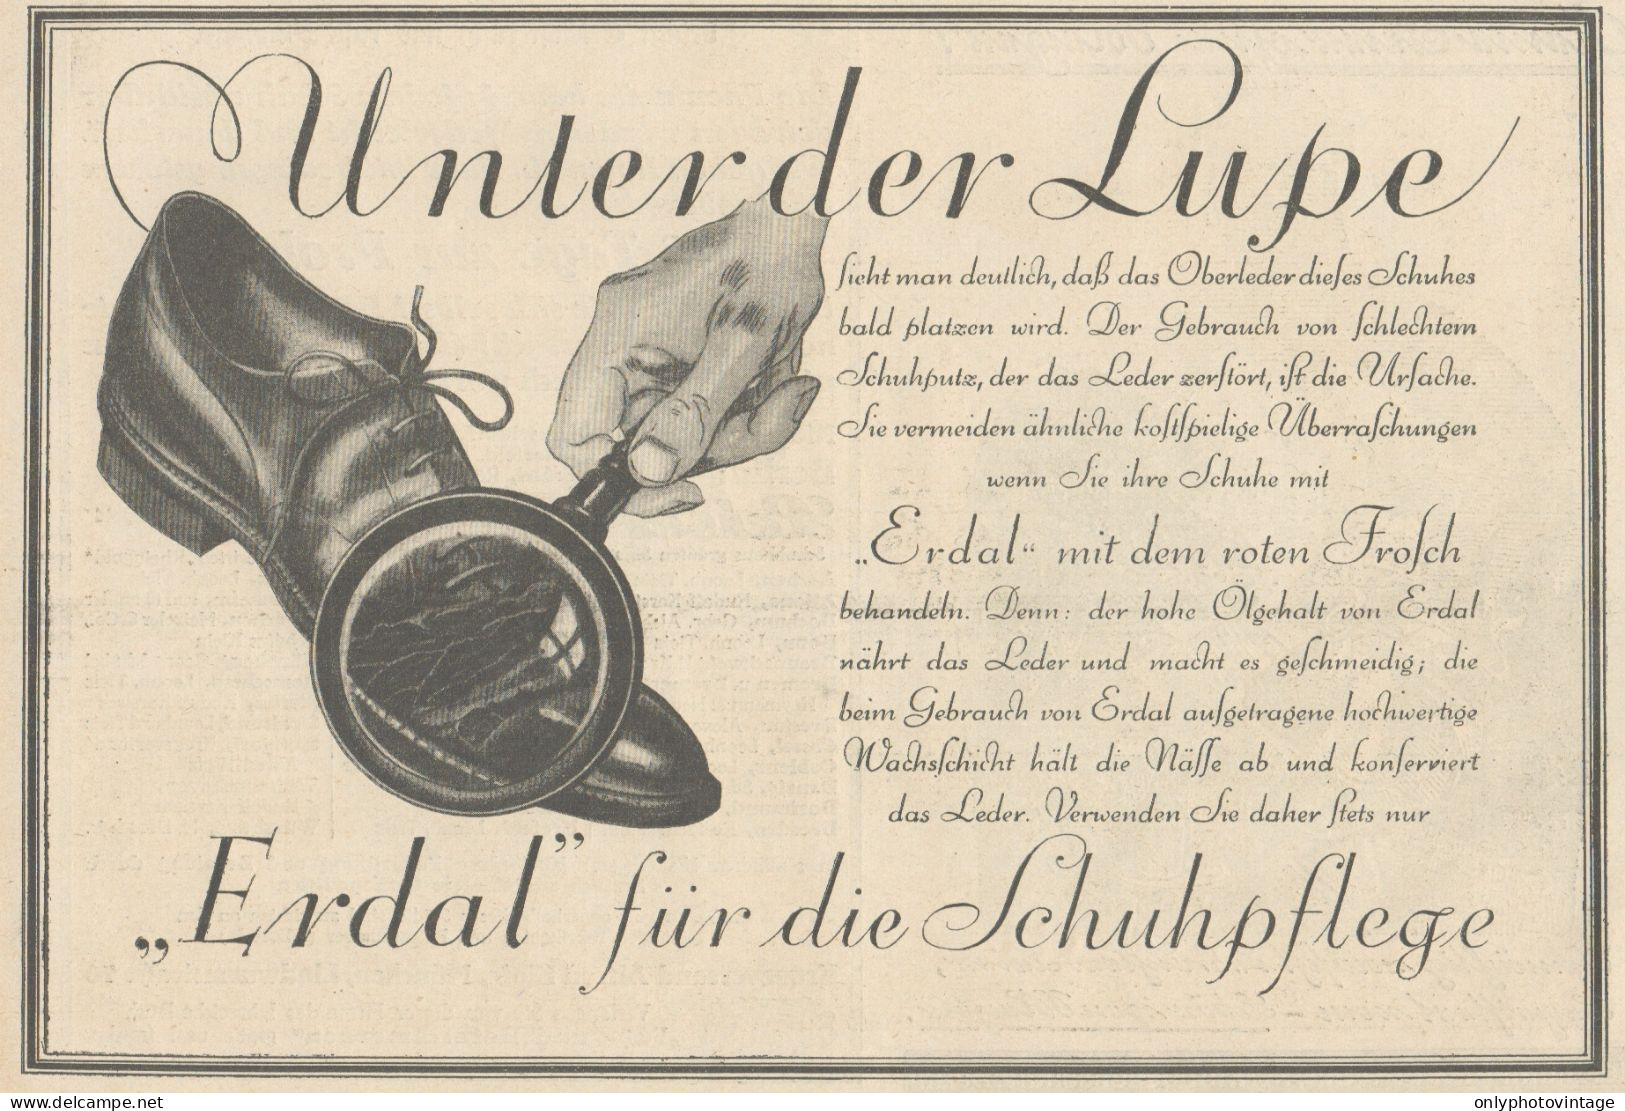 Unter der Lupe
ſieht man deutlich, daß das Oberleder dieſes Schuhes
bald platzen wird. Der Gebrauch von ſchlechtem
Schuhputz, der das Leder zerſtört, iſt die Urſache.
Sie vermeiden ähnliche koſtſpielige Überraſchungen
wenn Sie ihre Schuhe mit
„Erdal“ mit dem roten Froſch
behandeln. Denn: der hohe Ölgehalt von Erdal
nährt das Leder und macht es geſchmeidig; die
beim Gebrauch von Erdal aufgetragene hochwertige
Wachsſchicht hält die Näſſe ab und konſerviert
das Leder. Verwenden Sie daher ſtets nur
„Erdal” für die Schuhpflege
www.delcampe.net
onlyphotovintage